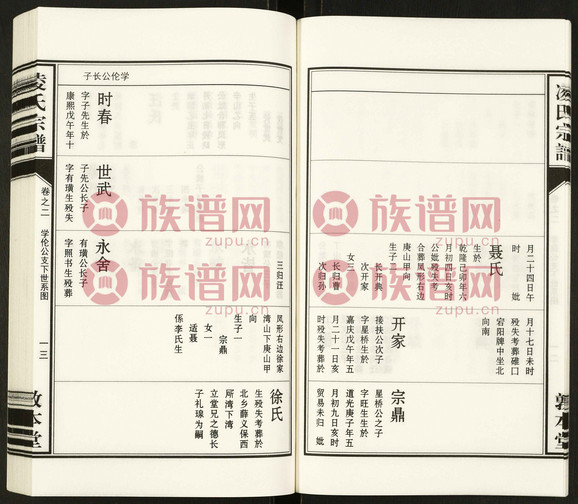 凌氏宗譜
月二十四日午
时 妣
聂氏
生於
乾隆己卯年六
月初四日亥时
公妣殁失考
合葬凤形右边
庚山甲向
生子二
长开典
次开家
女三
长归曹
次归孙
月十七日未时
殁失考葬碌口
宕阳牌中坐北
向南
开家
接扶公次子
字星桥生於
嘉庆戊午年五
月二十一日亥
时殁失考葬於
宗鼎
星桥公之子
字旺生生於
道光庚子年五
月初九日亥时
贸易未归 妣
敦本堂
凌氏宗譜
卷之二
学伦公支下世系图
一三
敦本堂
学伦公长子
时春
字子先生於
康熙戊午年十
世武
子先公长子
字有璜生殁失
永舍
有璜公长子
字照书生殁葬
三归汪
凤形右边徐家
湾山下庚山甲
向
生子一
宗鼎
女一
适聂
係李氏生
徐氏
生殁失考葬於
北乡薛义保西
所湾下湾
立堂兄之德长
子礼琭为嗣
族谱网
zupu.cn
族谱网
zupu.cn
族谱网
zupu.cn
族谱网
zupu.cn